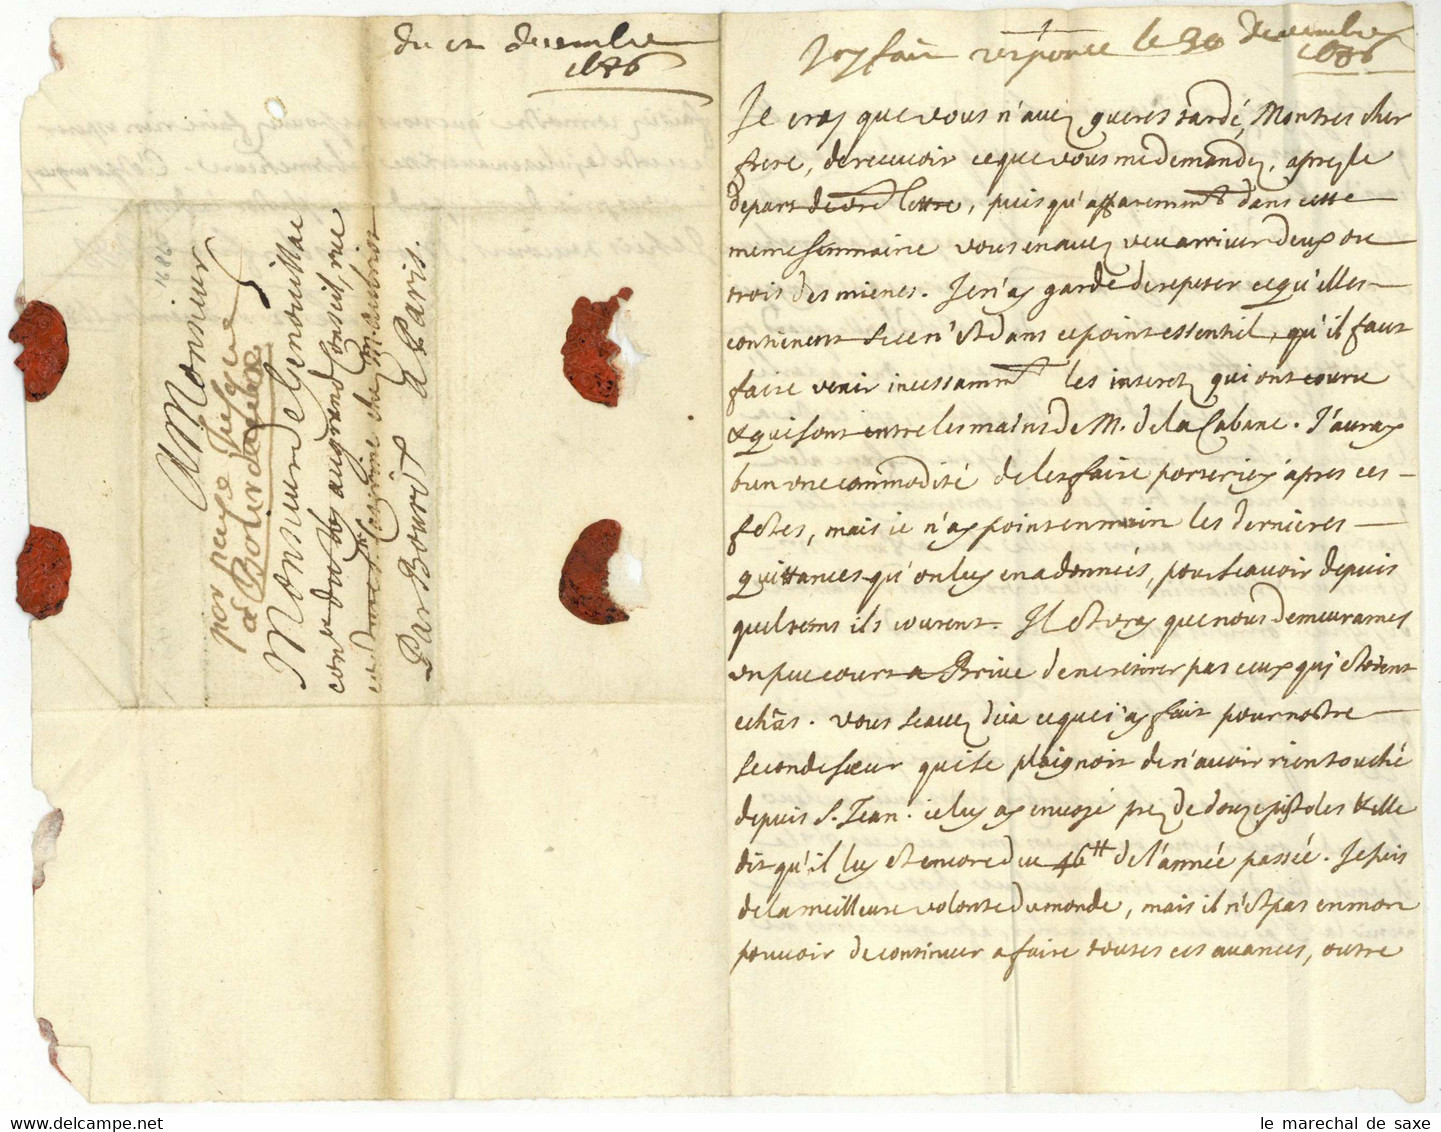 du 12 decembre
1686
A Monsieur
Monsieur de Genouillac
con.er du Roy au grand Conseil, rue
et
Par Bourdx A Paris.
port paye jusque
a Bordeaux
J'ay fait reponce le 30 decembre
1686
Je croy que vous n'avez gueres tardé, Mon tres cher
frere, de recevoir ce que vous me demandez, apres le
depart de vre lettre, puis qu'apparemmt dans cette
meme semmaine vous en avez veu arriver deux ou
trois des mienes. Je n'ay garde de repeter ce qu'elles
contienent si ce n'est dans ce point essentiel, qu'il faut
faire venir incessammt les interetz qui ont couru
& qui sont entre les mains de M. de la Cabane. J'auray
bien une commodité de les faire porter icy apres ces
festes, mais je n'ay point en main les dernieres
quittances qu'on luy en a données, pour scavoir depuis
quel tems ils courent. Il est vray que nous demeurames
un peu court a Brive de ne retirer pas ceux qui etoient
echûs. vous scavez deia ce que i'ay fait pour nostre
seconde soeur qui se plaignoit de n'avoir rien touché
depuis S. Jean. ie luy ay envoyé prez de douze pistoles & elle
dit qu'il luy est encore du 46tt de l'année passée. Je suis
de la meilleure volonté du monde, mais il n'est pas en mon
pouvoir de continuer a faire toutes ces avances, outre
le marechal de saxe